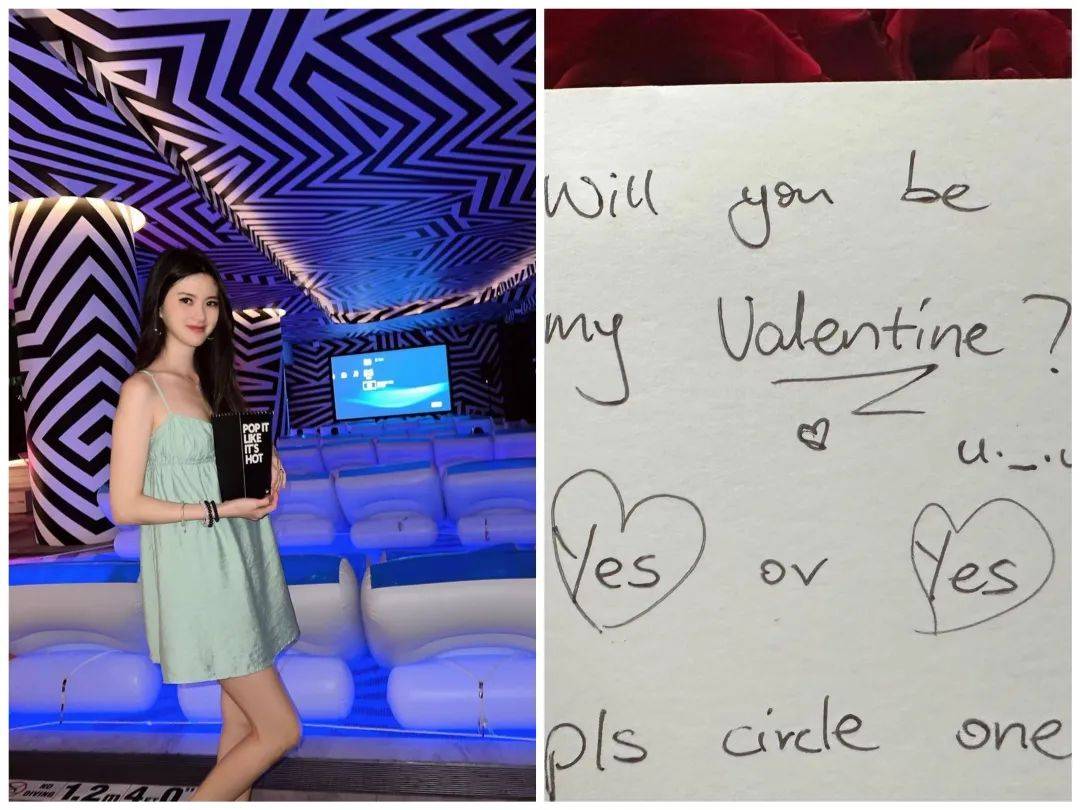 POP IT
LIKE
IT'S
HOT
NO
DIVING
1.2m 4FT 0"
Will you be
my Valentine?
u._.u
Yes or Yes
pls circle one